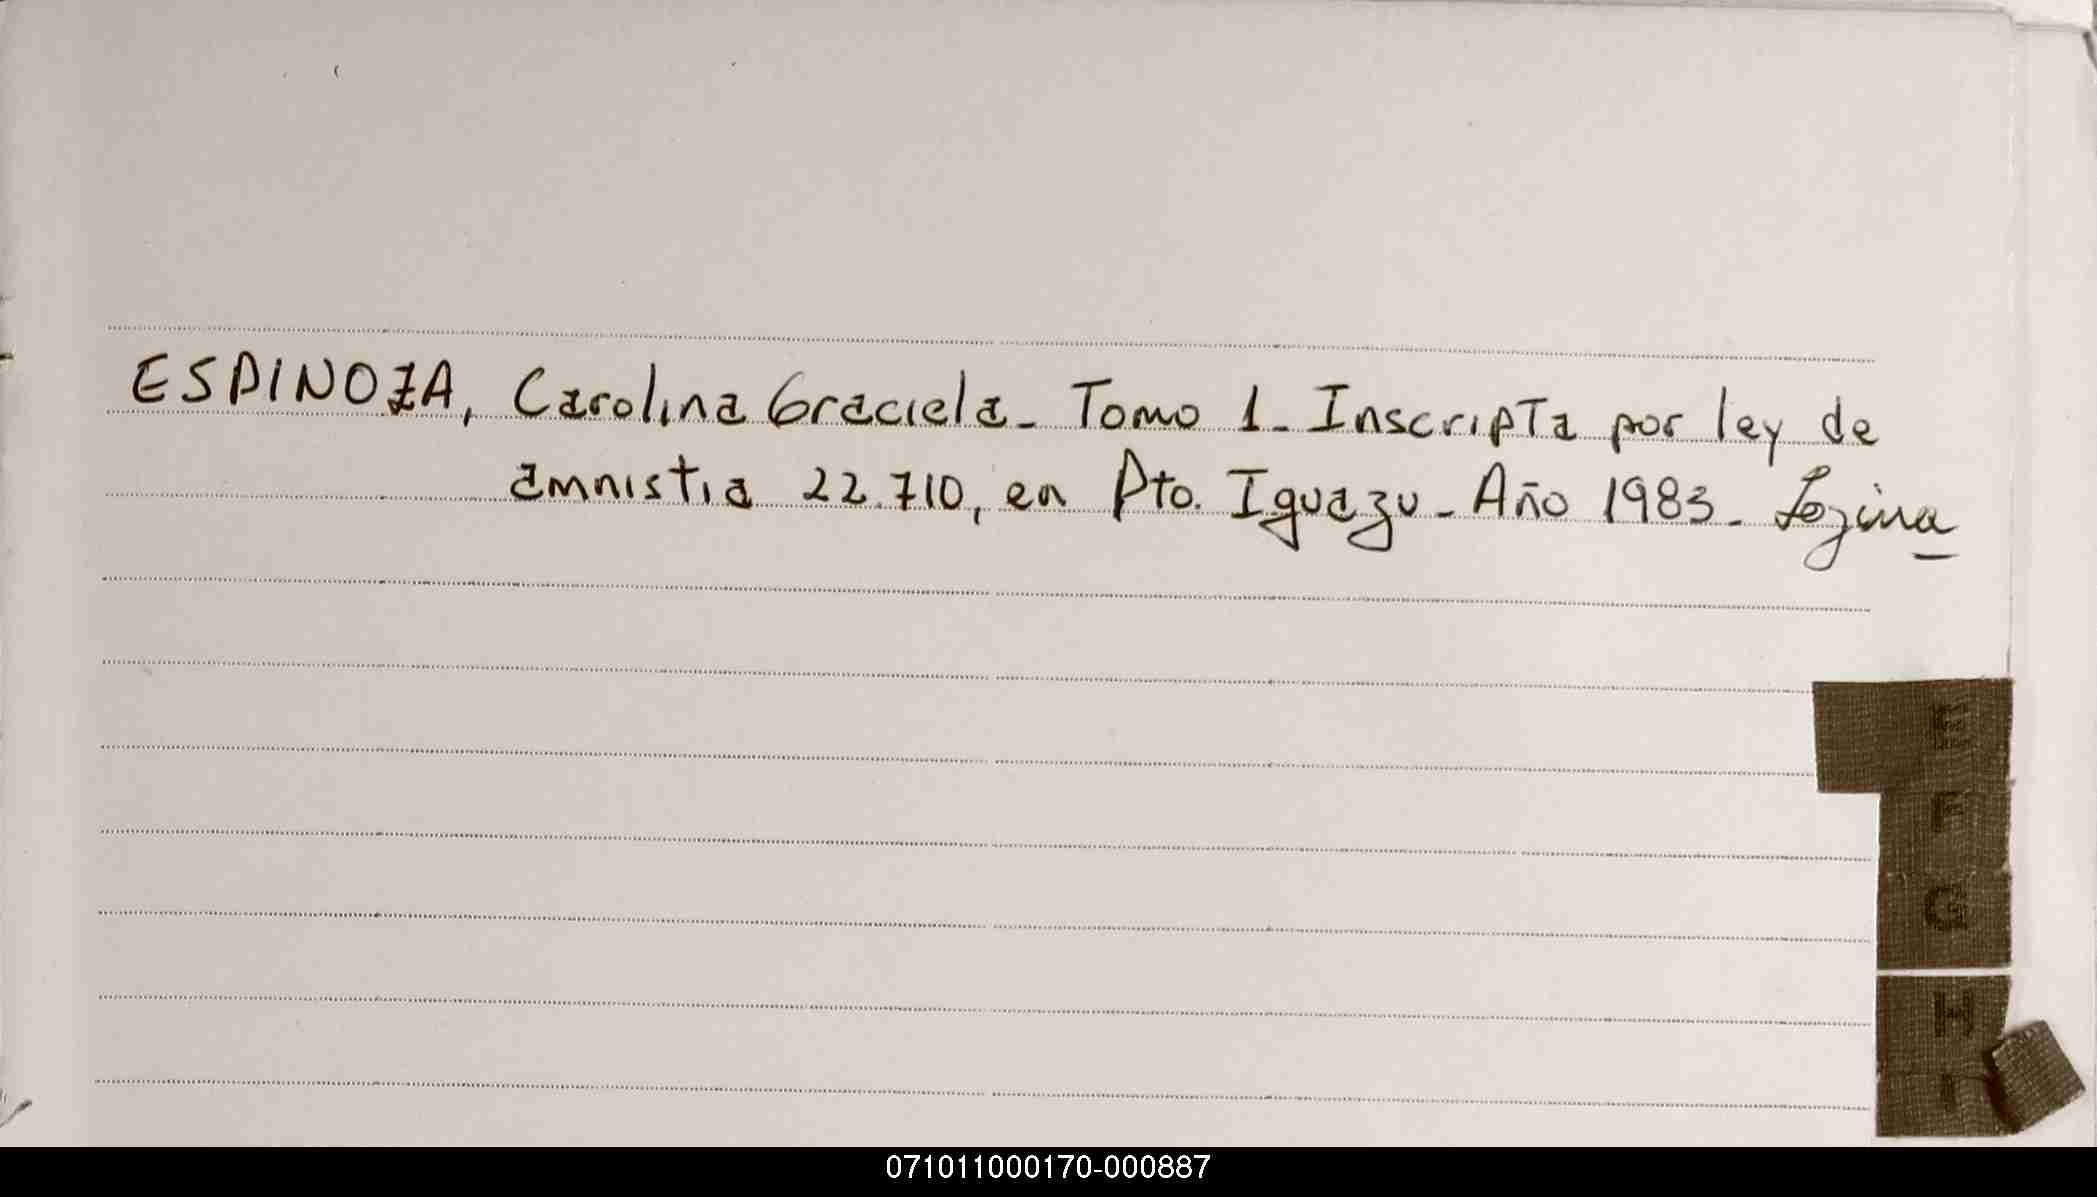 ESPINOZA, Carolina Graciela_ Tomo 1_ Inscripta por ley de
amnistia 22.710, en Pto. Iguazu_ Año 1983_
E
F
G
H
I
071011000170-000887